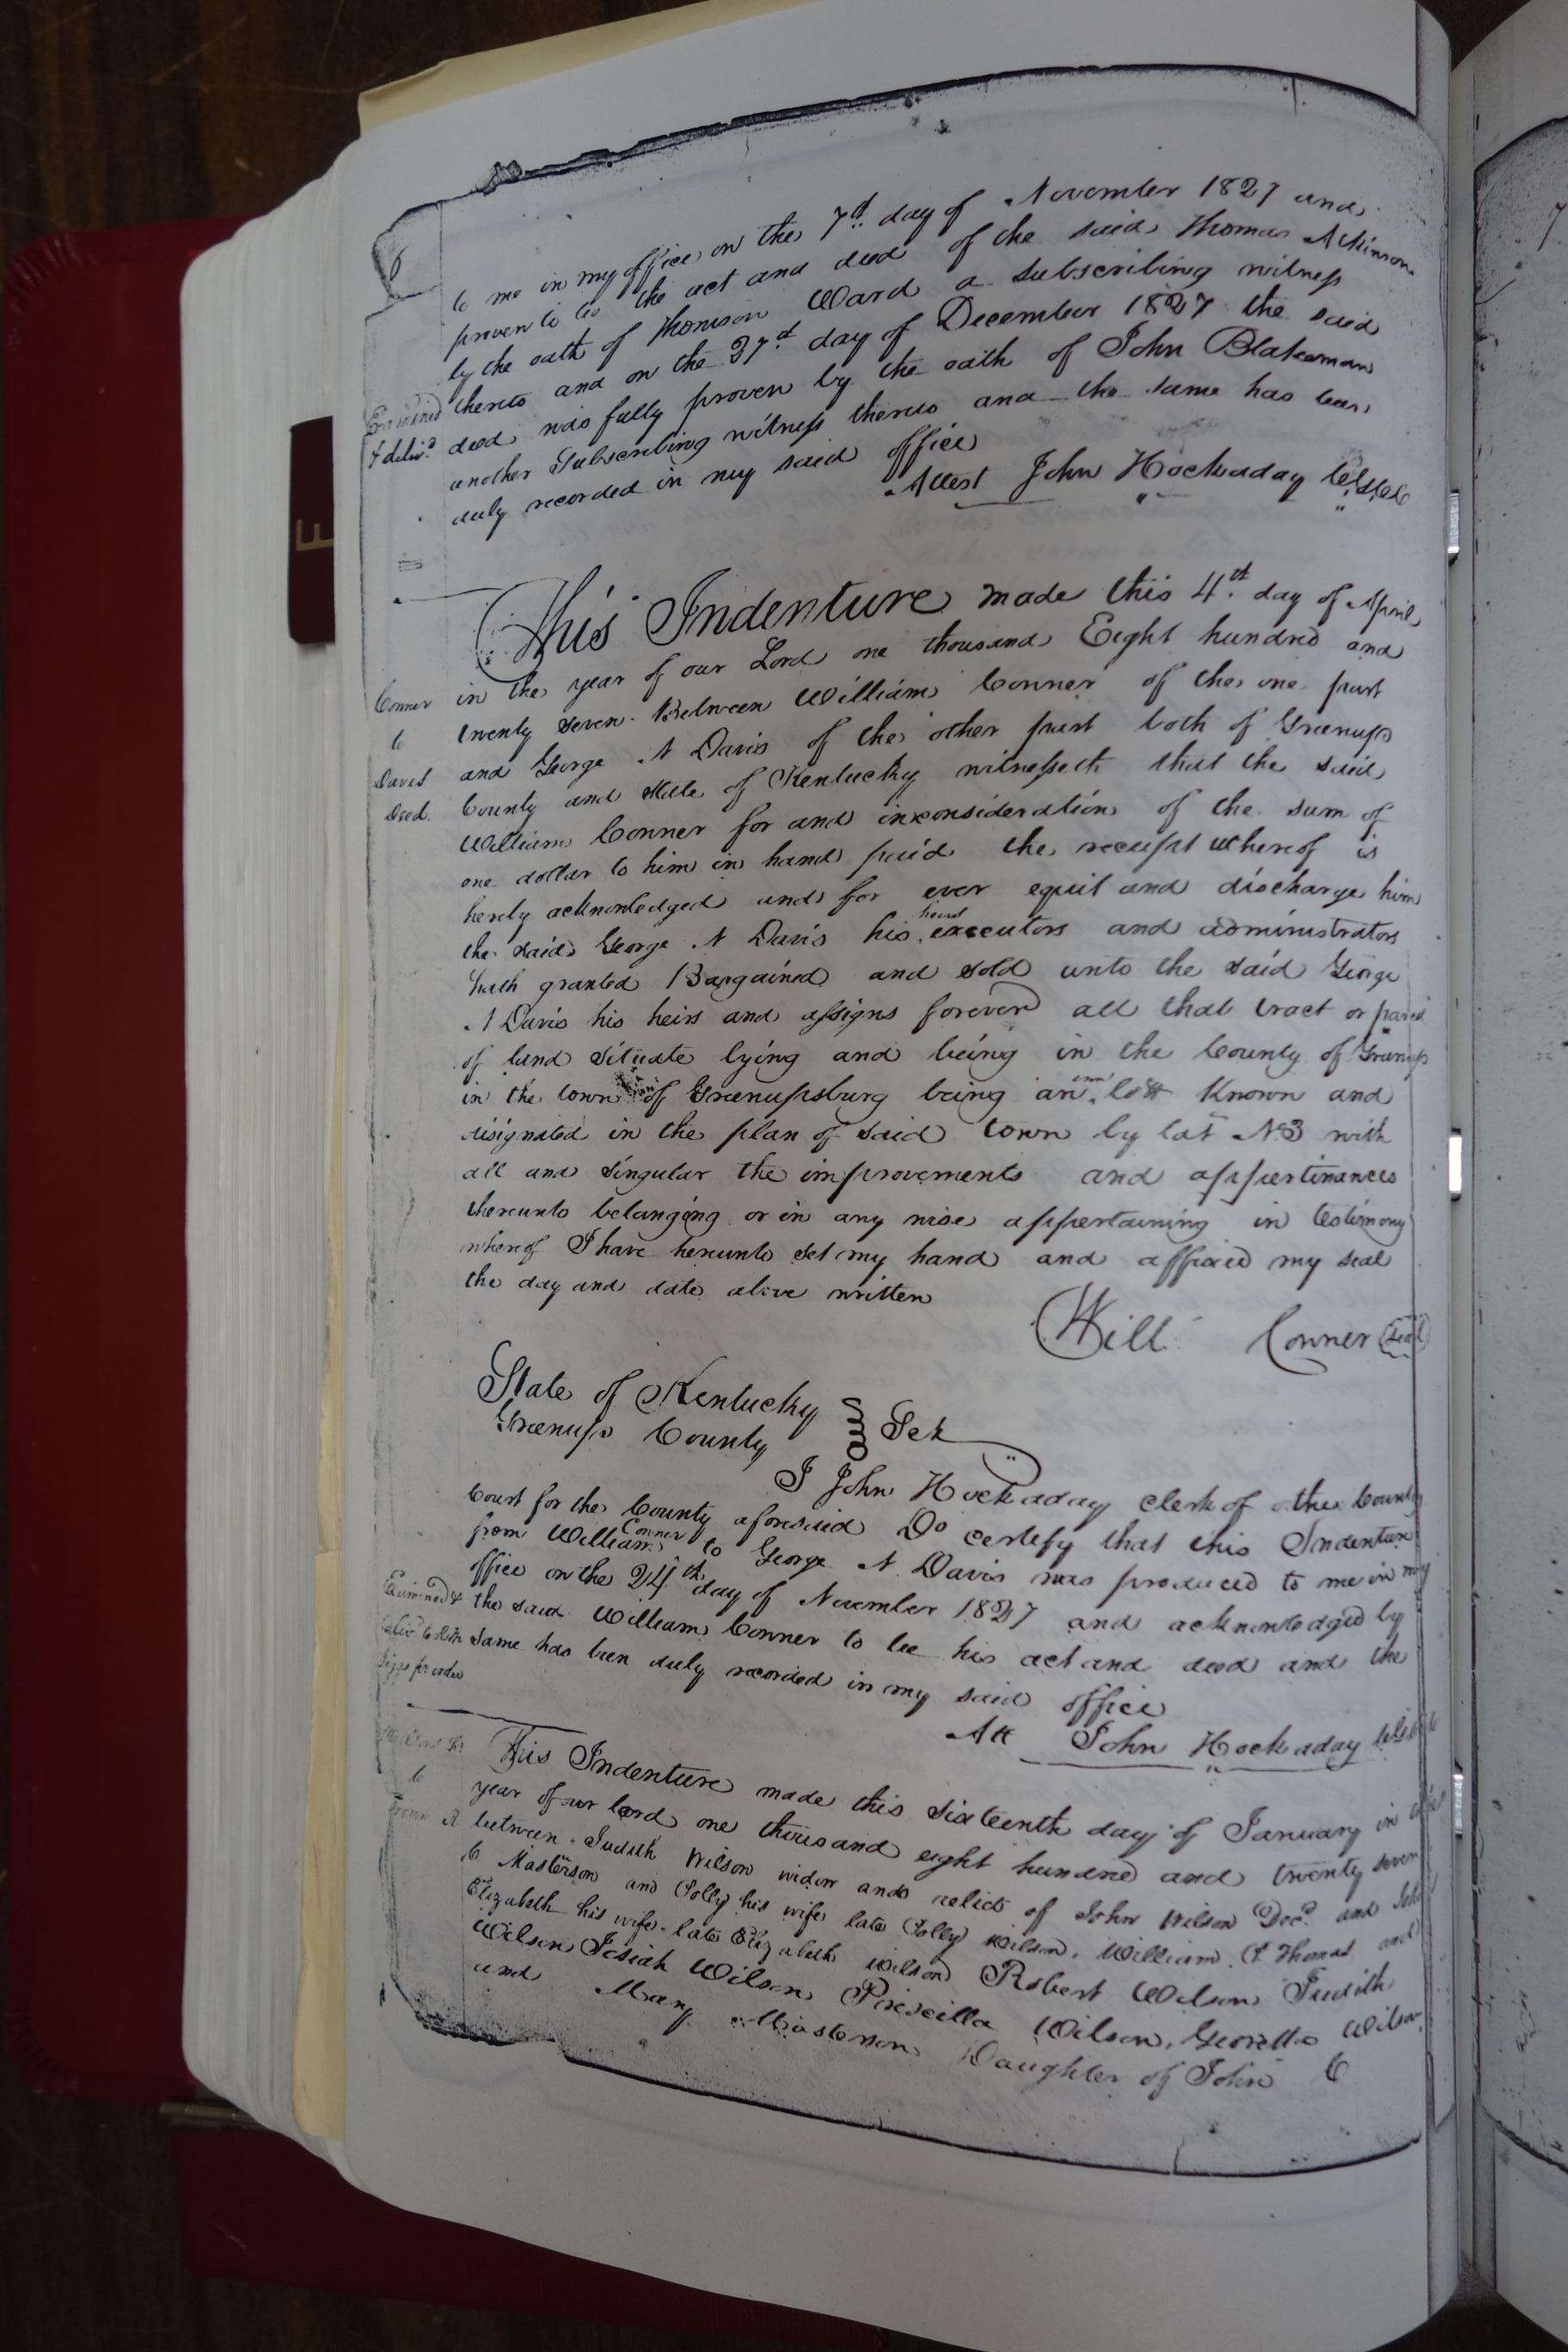 6
to me in my office on the 7th day of November 1827 and
proven to be the act and deed of the said Thomas Atkinson
by the oath of Thomson Ward a subscribing witness
thereto and on the 27th day of December 1827 the said
Examined
& deliv'd
deed was fully proven by the oath of John Blakeman
another Subscribing witness thereto and the same has been
duly recorded in my said office
Attest John Hockaday
This Indenture made this 4th day of April
in the year of our Lord one thousand Eight hundred and
Conner
to
Davis
Deed.
twenty seven. Between William Conner of the one part
and George N Davis of the other part both of Greenup
County and State of Kentucky witnesseth that the said
William Conner for and in consideration of the sum of
one dollar to him in hand paid the receipt whereof is
herely acknowledged and for ever equit and discharge him
the said George N Davis his heirs executors and administrators
hath granted Bargained and sold unto the said George
N Davis his heirs and assigns forever all that tract or parcel
of land situate lying and being in the County of Greenup
in the town of Greenupsburg being an inn lott known and
disignated in the plan of said town by lot No3 with
all and singular the improvements and appertinances
thereunto belonging or in any wise appertaining in testimony
whereof I have herunto set my hand and affixed my seal
the day and date above written
Will Conner Seal
State of Kentucky
Greenup County Sct
I John Hockaday clerk of the County
Court for the County aforesaid Do certify that this Indenture
from William Conner to George N. Davis was produced to me in my
office on the 24th day of November 1827 and acknowledged by
Examined &
the said William Conner to be his act and deed and the
same has been duly recorded in my said office
Att John Hockaday
This Indenture made this sixteenth day of January in the
to
year of our lord one thousand eight hundred and twenty seven
between Judith Wilson widow and relict of John Wilson Decd and John
C Masterson and Polly his wife late Polly Wilson, William P Thomas and
Elizabeth his wife late Elizabeth Wilson Robert Wilson Judith
Wilson Josiah Wilson Priscilla Wilson, Georetta Wilson
and Mary Masterson Daughter of John C